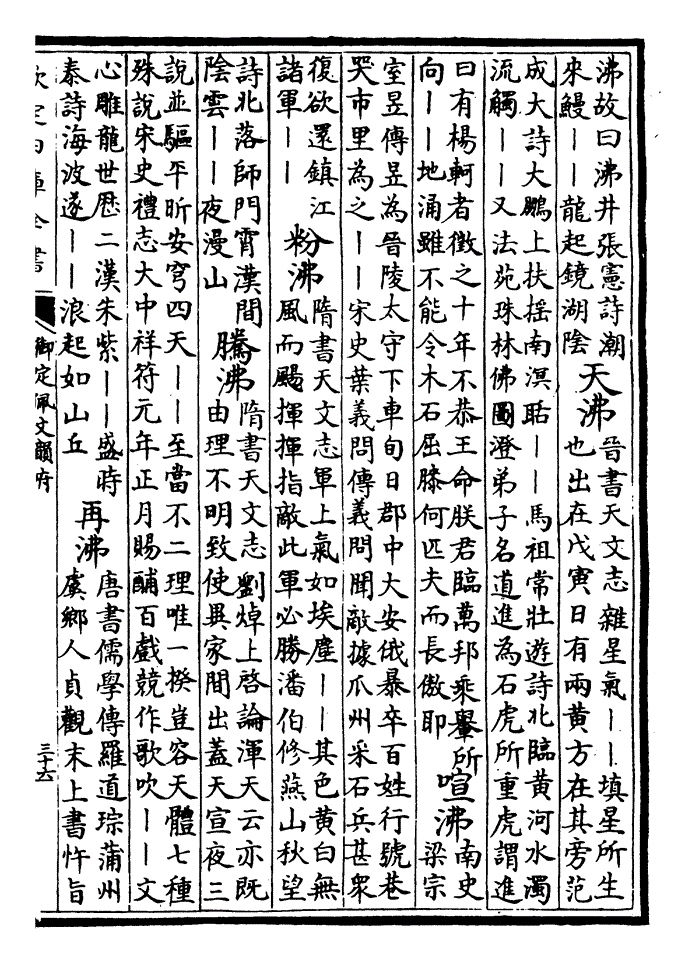 沸故曰沸井張憲詩潮
來鰻丨丨龍起鏡湖陰
天沸
晉書天文志雜星氣丨丨填星所生
也出在戊寅日有兩黃方在其旁范
成大詩大鵬上扶搖南溟聒丨丨馬祖常壯遊詩北臨黃河水濁
流觸丨丨又法苑珠林佛圖澄弟子名道進為石虎所重虎謂進
曰有楊軻者徵之十年不恭王命朕君臨萬邦乘轝所
向丨丨地涌雖不能令木石屈膝何匹夫而長傲耶
喧沸
南史
梁宗
室昱傳昱為晉陵太守下車旬日郡中大安俄暴卒百姓行號巷
哭市里為之丨丨宋史葉義問傳義問聞敵據瓜州采石兵甚衆
復欲還鎮江
諸軍丨丨
粉沸
隋書天文志軍上氣如埃塵丨丨其色黃白無
風而颺揮揮指敵此軍必勝潘伯修燕山秋望
詩北落師門霄漢間
陰雲丨丨夜漫山
騰沸
隋書天文志劉焯上啓論渾天云亦既
由理不明致使異家間出蓋天宣夜三
說並驅平昕安穹四天丨丨至當不二理唯一揆豈容天體七種
殊說宋史禮志大中祥符元年正月賜酺百戲競作歌吹丨丨文
心雕龍世歷二漢朱紫丨丨盛時
泰詩海波遂丨丨浪起如山丘
再沸
唐書儒學傳羅道琮蒲州
虞鄉人貞觀末上書忤旨
欽定四庫全書
御定佩文韻府
三十六